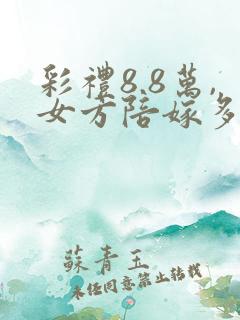 彩禮8.8萬,
女方陪嫁多
蘇青玉
未经同意禁止转载